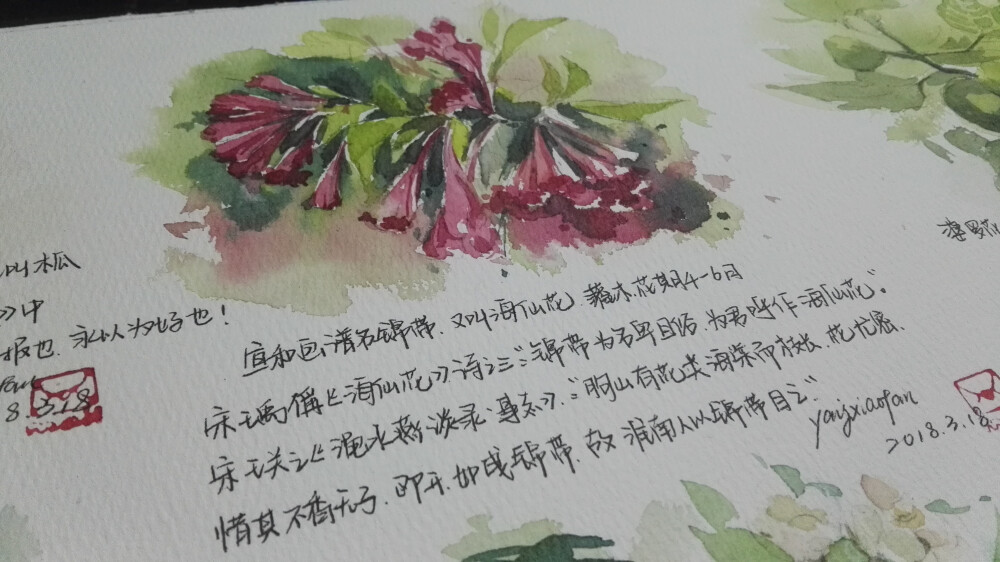 叫木瓜
》中
报也.永以为好也!
8.3.18
宣和画谱名锦带.又叫海仙花 灌木.花期4-6月
宋王禹偁《海仙花》诗之三:"锦带为名卑且俗.为君呼作海仙花。"
宋王辟之《渑水燕谈录·事志》:"朐山有花类海棠而枝长.花尤密.
惜其不香无子.既开.如曳锦带.故淮南人以锦带目之."
yangxiaofan
2018.3.18